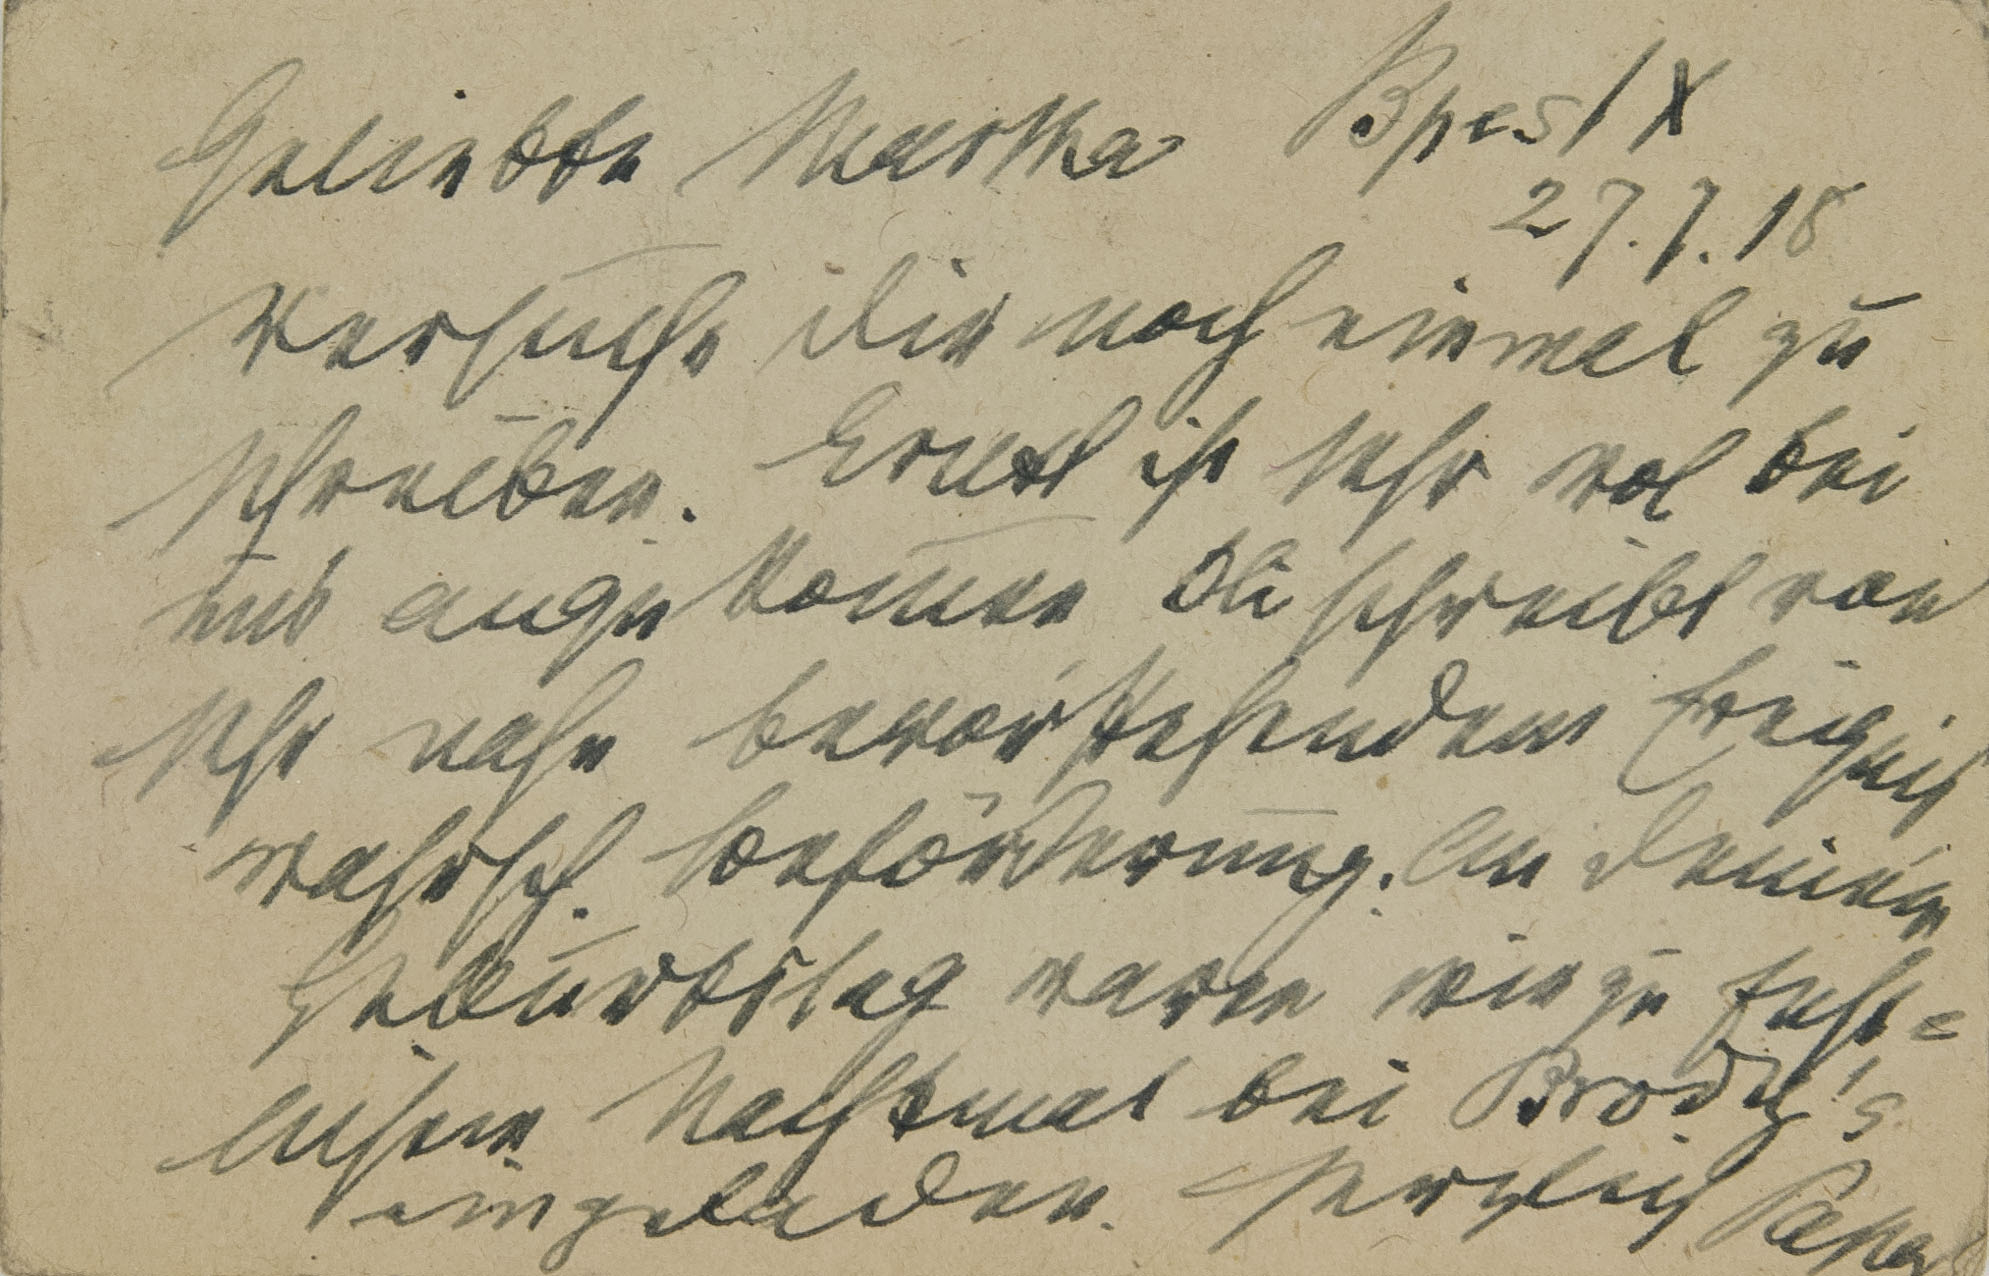 Geliebte Martha Bpest X
27.7.18
versuche Dir noch einmal zu
schreiben. Ernst ist sehr wol bei
uns angekommen Oli schreibt von
sehr nahe bevorstehendem Ereignis
wahrsch. Beförderung. An Deinem
Geburtstag waren wir zu fest=
lichem Nachtmal bei Brody's
eingeladen. Herzlich Papa